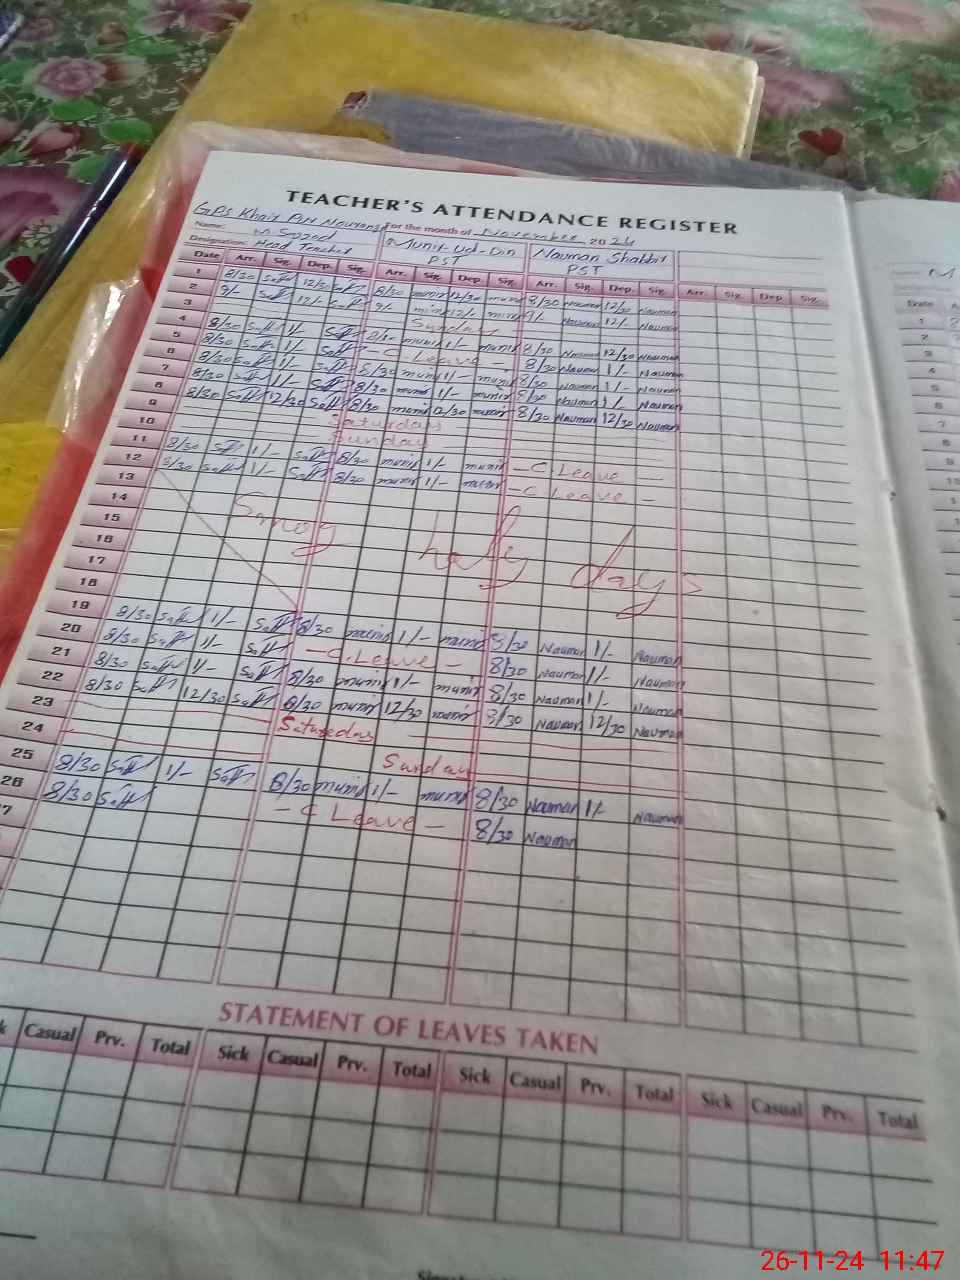 TEACHER'S ATTENDANCE REGISTER
GPS Khair Pur
For the month of November 2024
Name: M Sajjad Munir-ud-Din Nauman Shabbir
Designation: Head Teacher PST PST
Date Arr. Sig. Dep. Sig. Arr. Sig. Dep. Sig. Arr. Sig. Dep. Sig. Arr. Sig. Dep. Sig.
1 8/30 12/30 8/30 munir 12/30 munir 8/30 Nauman 12/30 Nauman
2 9/- 12/- 9/- munir 12/- munir 9/- Nauman 12/- Nauman
3 Sunday
4 8/30 1/- 8/30 munir 1/- munir 8/30 Nauman 12/30 Nauman
5 8/30 1/- - C Leave - 8/30 Nauman 1/- Nauman
6 8/30 1/- 8/30 munir 1/- munir 8/30 Nauman 1/- Nauman
7 8/30 1/- 8/30 munir 1/- munir 8/30 Nauman 1/- Nauman
8 8/30 12/30 8/30 munir 12/30 munir 8/30 Nauman 12/30 Nauman
9 Saturday
10 Sunday
11 8/30 1/- 8/30 munir 1/- munir - C. Leave -
12 8/30 1/- 8/30 munir 1/- munir - C Leave -
13
14
15 Smog days
16
17
18
19 8/30 1/- 8/30 munir 1/- munir 8/30 Nauman 1/- Nauman
20 8/30 1/- - C. Leave - 8/30 Nauman 1/- Nauman
21 8/30 1/- 8/30 munir 1/- munir 8/30 Nauman 1/- Nauman
22 8/30 12/30 8/30 munir 12/30 munir 8/30 Nauman 12/30 Nauman
23 Saturday
24 Sunday
25 8/30 1/- 8/30 munir 1/- munir 8/30 Nauman 1/- Nauman
26 8/30 - C Leave - 8/30 Nauman
7
STATEMENT OF LEAVES TAKEN
k Casual Prv. Total Sick Casual Prv. Total Sick Casual Prv. Total Sick Casual Prv. Total
26-11-24 11:47